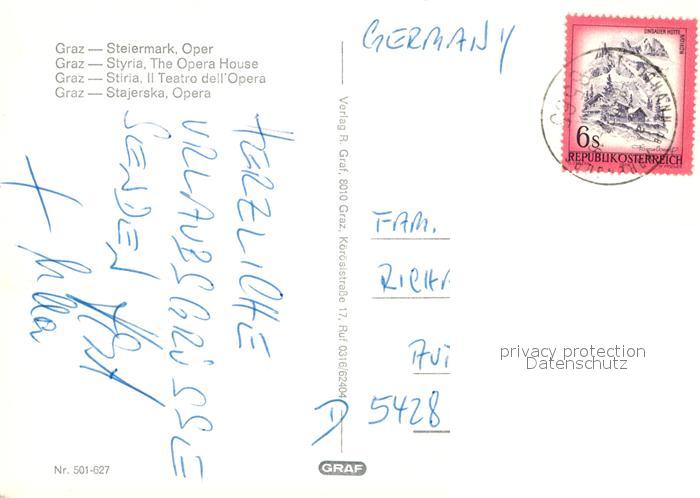 Graz — Steiermark, Oper
Graz — Styria, The Opera House
Graz — Stiria, Il Teatro dell'Opera
Graz — Stajerska, Opera
HERZLICHE
URLAUBSGRÜSSE
SENDEN
+
Nr. 501-627
Verlag R. Graf, 8010 Graz, Körösistraße 17, Ruf 0316/62404
GRAF
GERMANY
LINDAUER HÜTTE
6s
REPUBLIK ÖSTERREICH
FAM.
D 5428
privacy protection
Datenschutz